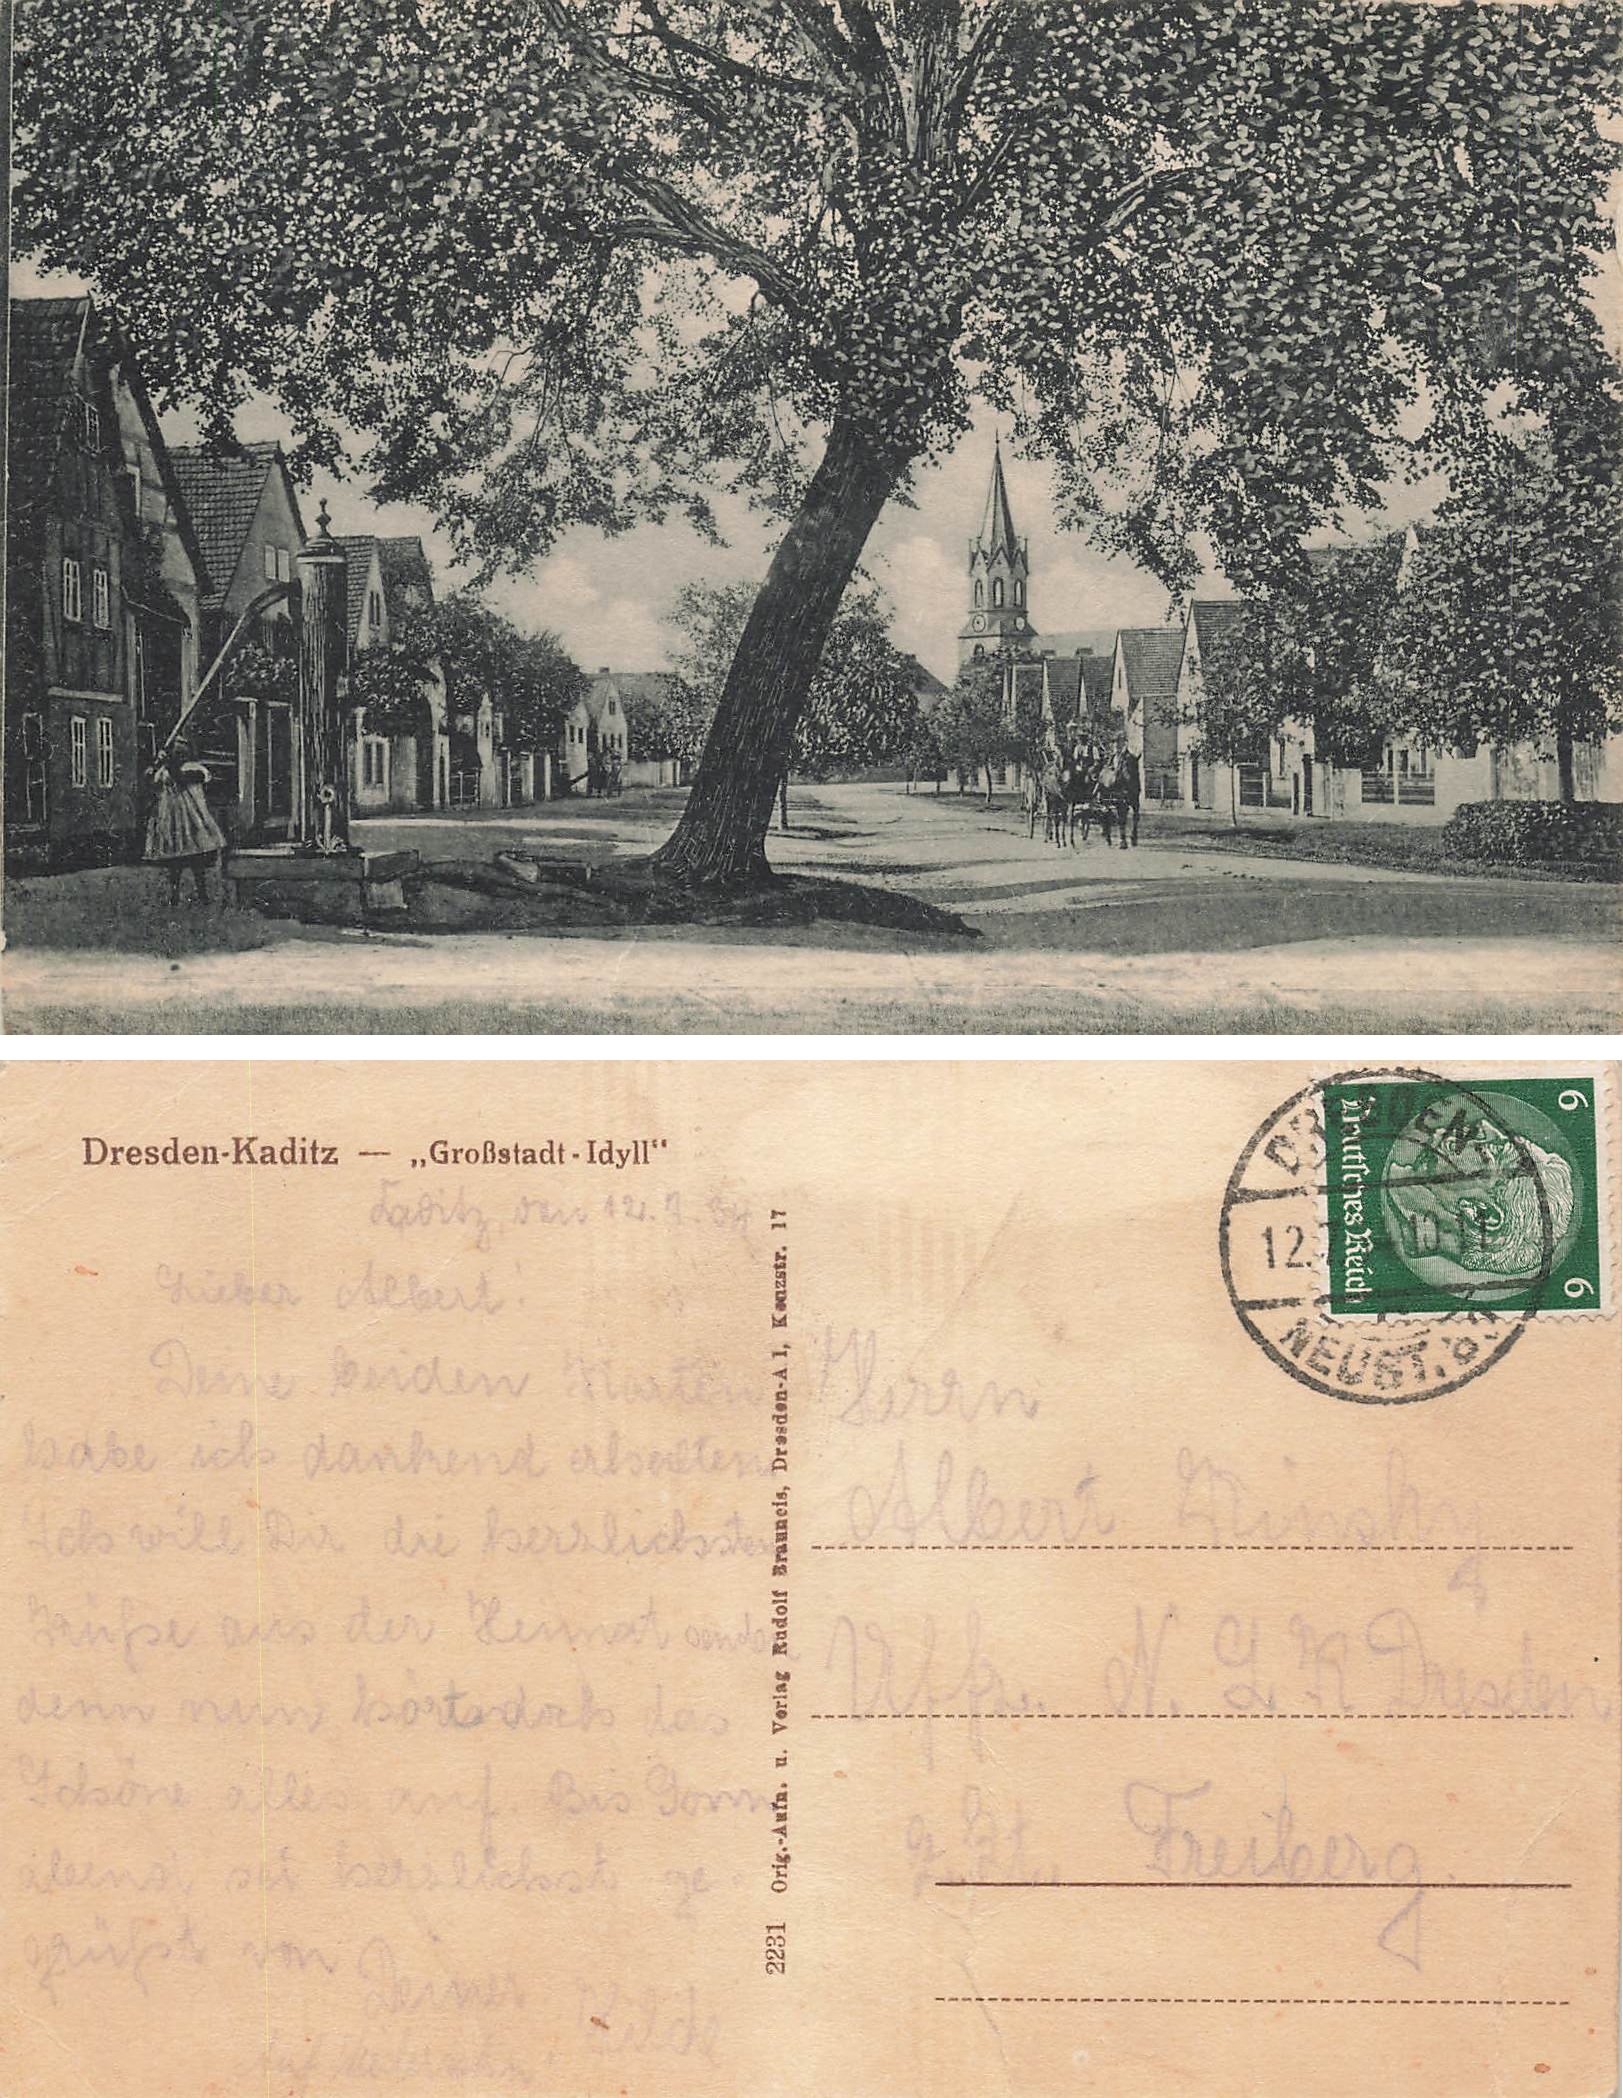 Dresden-Kaditz — „Großstadt-Idyll“
Kaditz, den 12. 7. 34
Lieber Albert!
Deine beiden Karten
habe ich dankend erhalten
Ich will Dir die herzlichsten
Grüße aus der Heimat senden
denn nun hört doch das
Schöne alles auf Bis Sonn
abend sei herzlichst ge-
grüßt von
Deiner Hilde
Auf Wiedersehn!
2231 Orig.-Aufn. u. Verlag Rudolf Brauneis, Dresden-A 1, Kanzstr. 17
DRESDEN
12.7
NEUST.
Deutsches Reich
6 6
Herrn
Albert
N. Dresden
z. Zt. Freiberg.